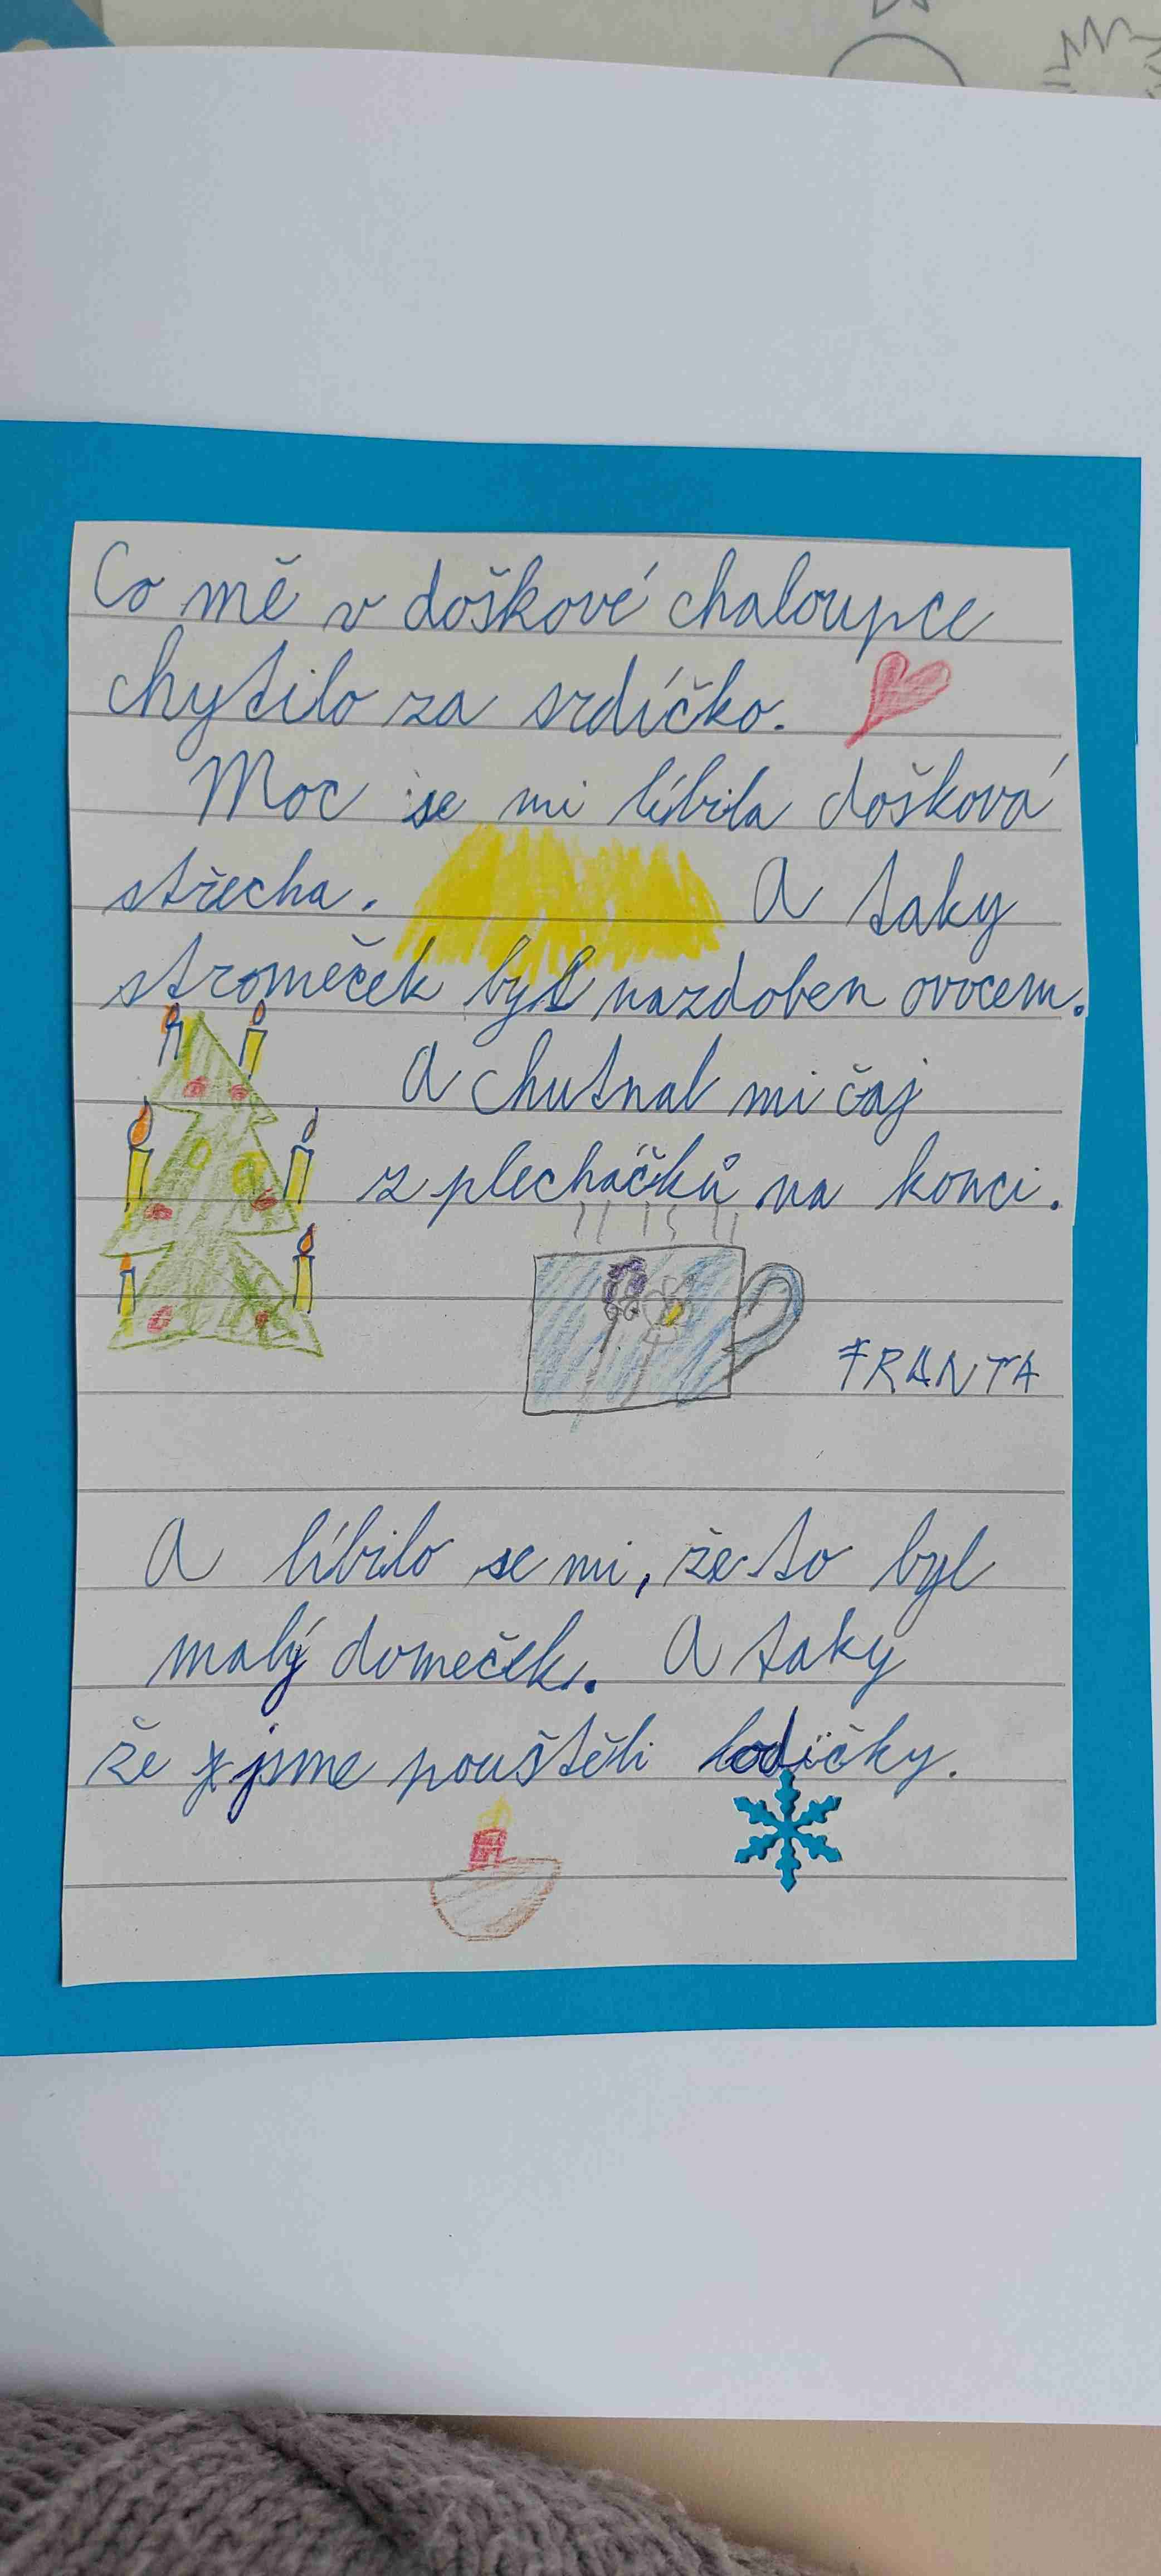 Co mě v doškové chaloupce
chytilo za srdíčko.
Moc se mi líbila došková
střecha. A taky
stromeček byl nazdoben ovocem.
A chutnal mi čaj
z plecháčků na konci.
FRANTA
A líbilo se mi, že to byl
malý domeček. A taky
že jsme pouštěli lodičky.